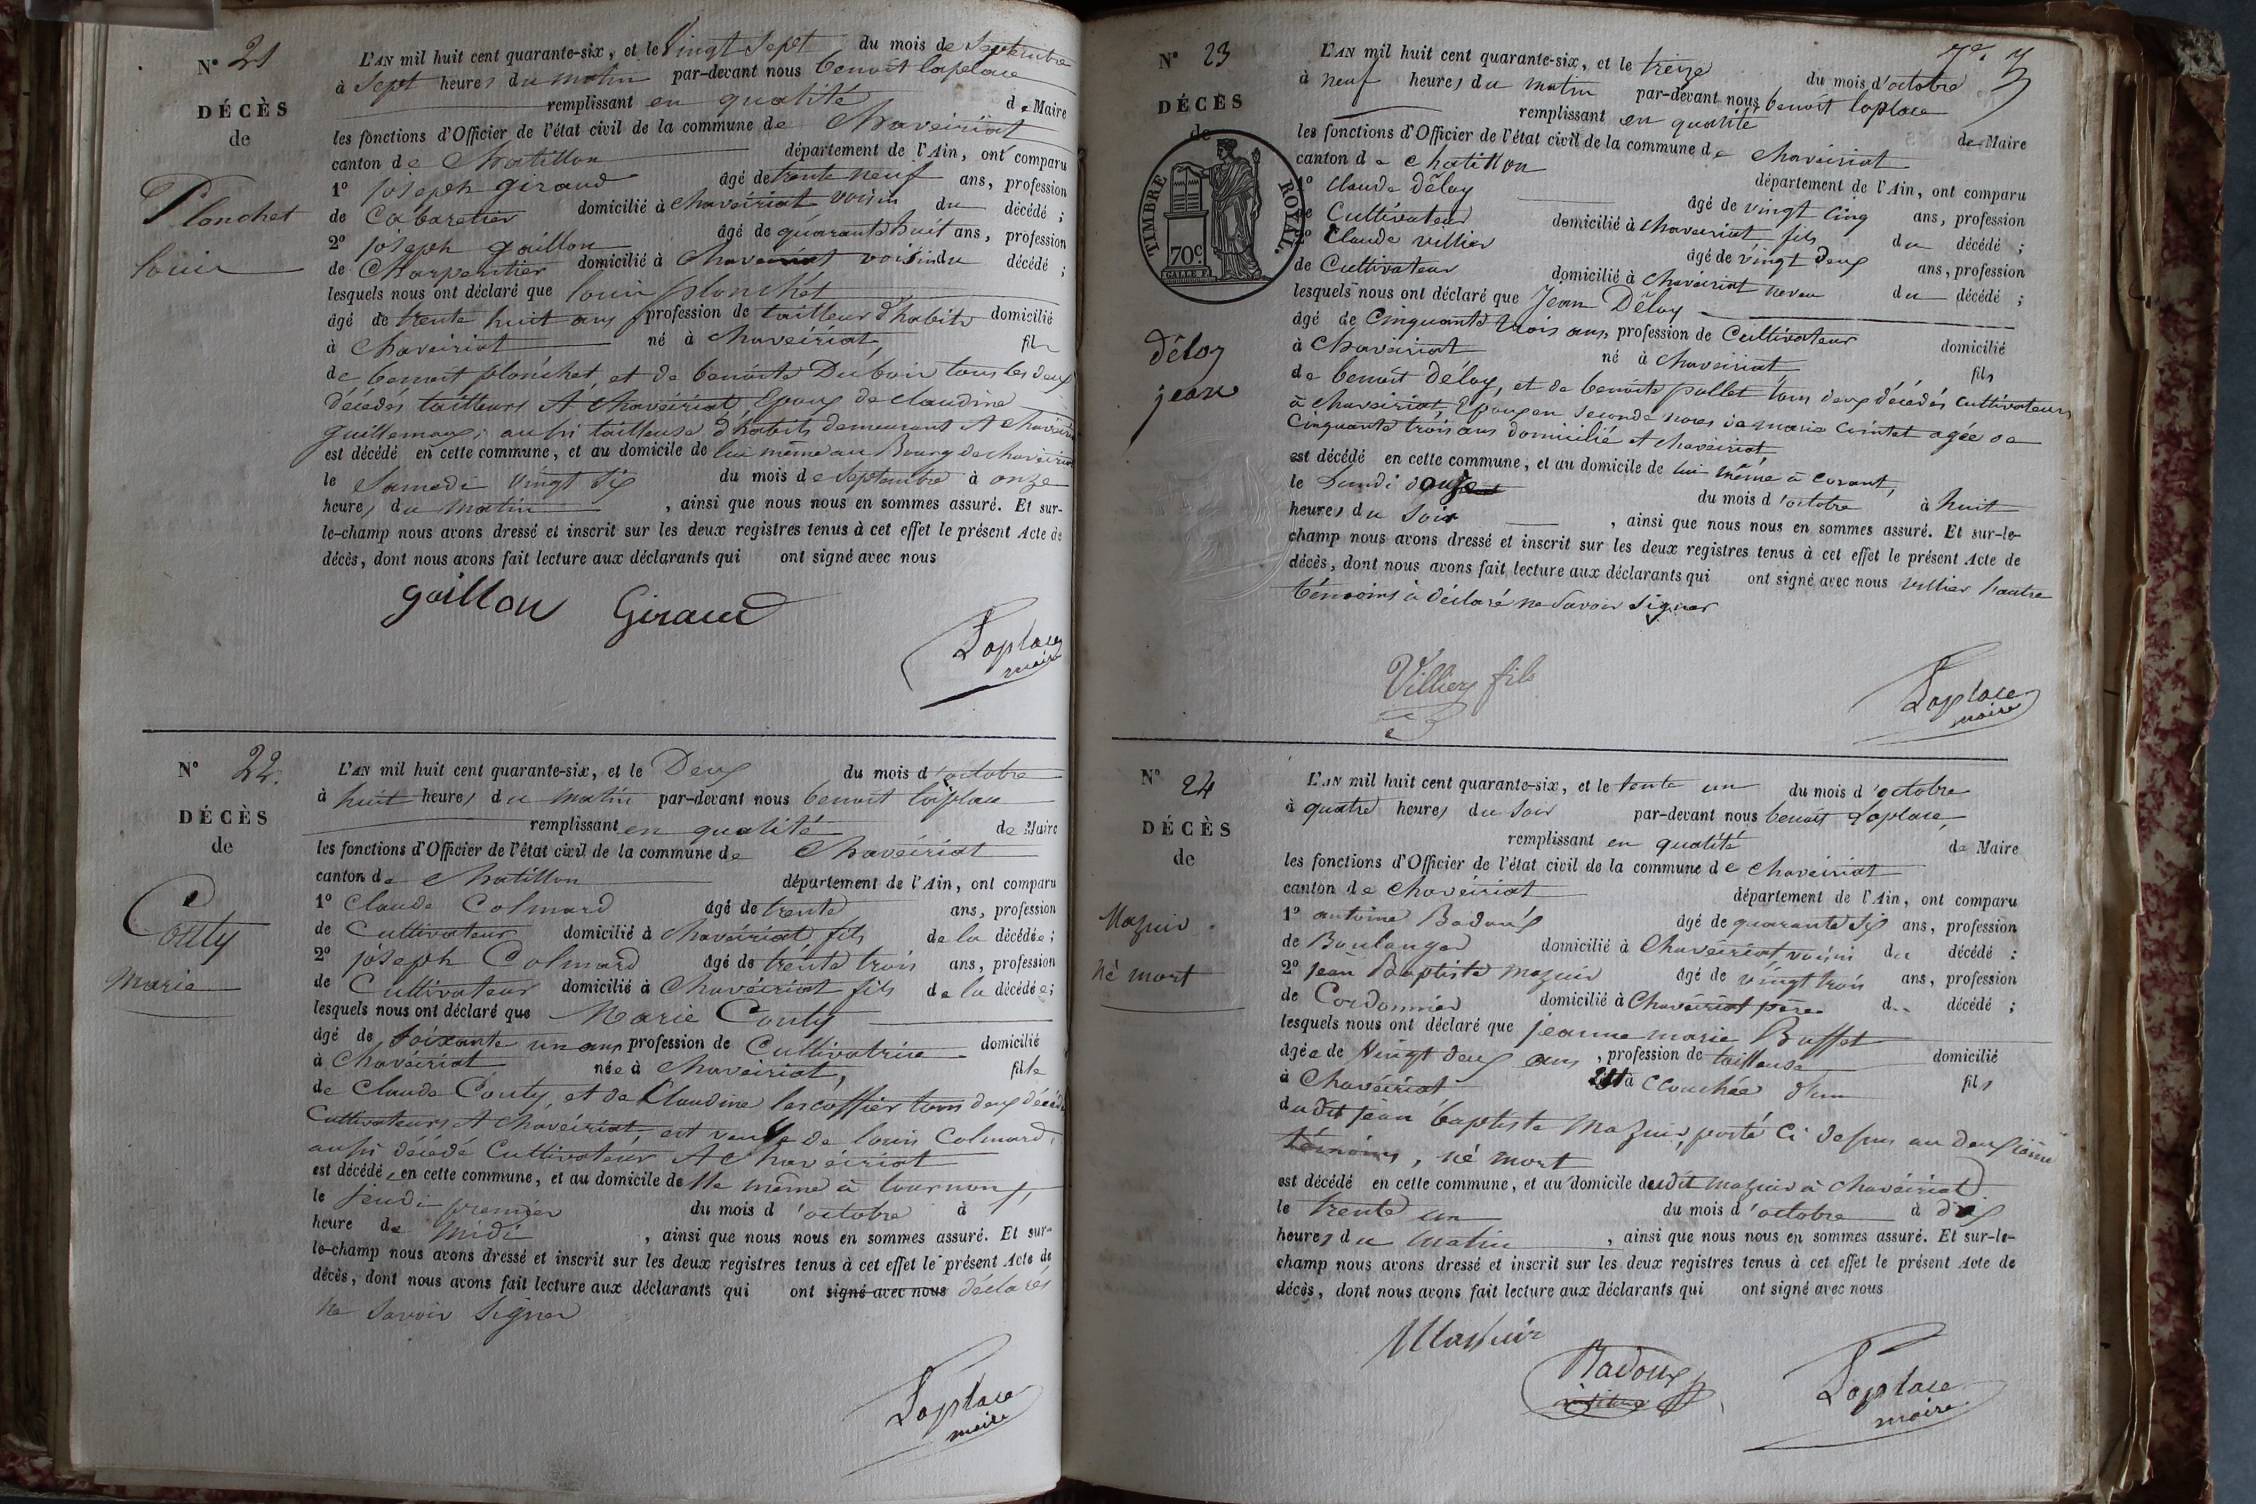 N° 21
DÉCÈS
de
Planchet
louis
L'AN mil huit cent quarante-six, et le vingt sept du mois de Septembre
à sept heures du matin par-devant nous benoit laplace
remplissant en qualité de Maire
les fonctions d'Officier de l'état civil de la commune de Chaveiriat
canton de Chatillon département de l'Ain, ont comparu
1° joseph giraud âgé de trente neuf ans, profession
de Cabaretier domicilié à chaveiriat voisin du décédé ;
2° joseph gaillon âgé de quarante huit ans, profession
de Charpentier domicilié à Chaveiriat voisin du décédé ;
lesquels nous ont déclaré que louis planchet
âgé de trente huit ans profession de tailleur d'habits domicilié
à Chaveiriat né à chaveiriat, fils
de benoit planchet, et de benoite Dubois tous les deux
décédés tailleurs A chaveiriat, Epoux de claudine
guillemaux, aussi tailleuse d'habits demeurant A chaveiriat
est décédé en cette commune, et au domicile de lui même au Bourg de chaveiriat
le Samedi vingt six du mois de Septembre à onze
heures du matin , ainsi que nous nous en sommes assuré. Et sur-
le-champ nous avons dressé et inscrit sur les deux registres tenus à cet effet le présent Acte de
décès, dont nous avons fait lecture aux déclarants qui ont signé avec nous
gaillon Giraud
Laplace
maire
N° 22.
DÉCÈS
de
Couty
Marie
L'AN mil huit cent quarante-six, et le Deux du mois d'octobre
à huit heures du matin par-devant nous benoit laplace
remplissant en qualité de Maire
les fonctions d'Officier de l'état civil de la commune de Chaveiriat
canton de Chatillon département de l'Ain, ont comparu
1° Claude Colmard âgé de trente ans, profession
de Cultivateur domicilié à Chaveiriat fils de la décédée ;
2° joseph Colmard âgé de trente trois ans, profession
de Cultivateur domicilié à Chaveiriat fils de la décédée ;
lesquels nous ont déclaré que Marie Couty
âgé de Soixante un ans profession de Cultivatrice domicilié
à Chavéiriat née à chaveiriat, file
de Claude Couty, et de Claudine lescoffier tous deux décédés
Cultivateurs A Chavéiriat, est veuve de louis Colmard,
aussi décédé Cultivateur A Chavéiriat
est décédé en cette commune, et au domicile de lle même à tournoux,
le jeudi premier du mois d'octobre à
heure de midi , ainsi que nous nous en sommes assuré. Et sur-
le-champ nous avons dressé et inscrit sur les deux registres tenus à cet effet le présent Acte de
décès, dont nous avons fait lecture aux déclarants qui ont signé avec nous déclarés
ne savoir signer
Laplace
maire
N° 23
DÉCÈS
de
TIMBRE ROYAL.
70 c.
déloy
jean
L'AN mil huit cent quarante-six, et le treize du mois d'octobre
à neuf heures du matin par-devant nous benoit laplace
remplissant en qualité de Maire
les fonctions d'Officier de l'état civil de la commune de chaveiriat
canton de chatillon département de l'Ain, ont comparu
1° claude déloy âgé de vingt cinq ans, profession
de Cultivateur domicilié à chaveiriat fils du décédé ;
2° Claude villier âgé de vingt deux ans, profession
de Cultivateur domicilié à chavéiriat neveu du décédé ;
lesquels nous ont déclaré que Jean Déloy
âgé de Cinquante trois ans profession de Cultivateur domicilié
à Chaveiriat né à chaveiriat fils
de benoit déloy, et de benoite pallet tous deux décédés cultivateurs
à chaveiriat, Epoux en seconde noces de marie agée de
Cinquante trois ans domicilié A chaveiriat
est décédé en cette commune, et au domicile de lui même à corant,
le Lundi douze du mois d'octobre à huit
heures du soir , ainsi que nous nous en sommes assuré. Et sur-le-
champ nous avons dressé et inscrit sur les deux registres tenus à cet effet le présent Acte de
décès, dont nous avons fait lecture aux déclarants qui ont signé avec nous villier l'autre
témoins à déclaré ne savoir signer
Villier fils
Laplace
maire
N° 24
DÉCÈS
de
Mazuir
né mort
L'AN mil huit cent quarante-six, et le tente un du mois d'octobre
à quatre heures du soir par-devant nous benoit Laplace,
remplissant en qualité de Maire
les fonctions d'Officier de l'état civil de la commune de chaveiriat
canton de chavéiriat département de l'Ain, ont comparu
1° antoine Badoux âgé de quarante six ans, profession
de Boulanger domicilié à Chavéiriat voisin du décédé :
2° jean Baptiste mazuir âgé de vingt trois ans, profession
de Cordonnier domicilié à Chavéiriat père d.. décédé ;
lesquels nous ont déclaré que jeanne marie Buffet
âgée de vingt deux ans , profession de tailleuse domicilié
à Chavéiriat est à ccouchée d'un fils
dudit jean baptiste Mazuir, porté ci dessus au deuxième
témoins, né mort
est décédé en cette commune, et au domicile dudit mazuir à chavéiriat
le trente un du mois d'octobre à dix
heures du matin , ainsi que nous nous en sommes assuré. Et sur-le-
champ nous avons dressé et inscrit sur les deux registres tenus à cet effet le présent Acte de
décès, dont nous avons fait lecture aux déclarants qui ont signé avec nous
Massuir
Badoux
Laplace
maire